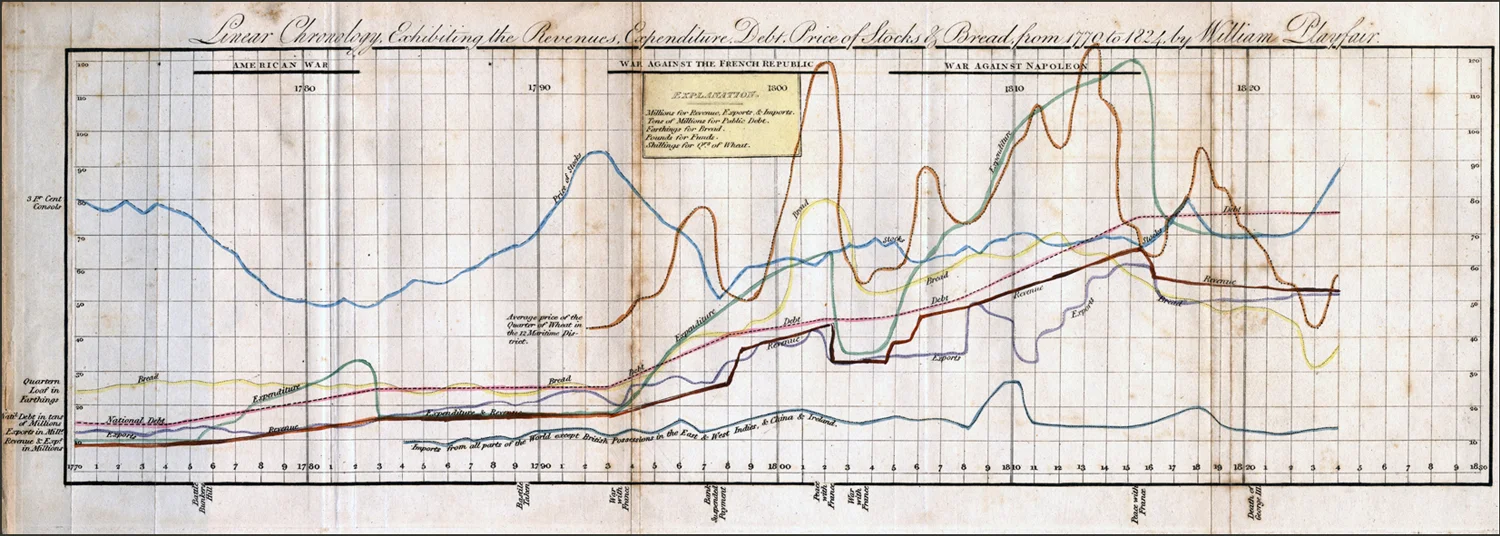 Linear Chronology, Exhibiting the Revenues, Expenditure, Debt, Price of Stocks & Bread, from 1770 to 1824, by William Playfair.
AMERICAN WAR
WAR AGAINST THE FRENCH REPUBLIC
WAR AGAINST NAPOLEON
1780
1790
1800
1810
1820
EXPLANATION.
Millions for Revenue, Exports, & Imports.
Tens of Millions for Public Debt.
Farthings for Bread.
Pounds for Funds.
Shillings for Qrs. of Wheat.
110
100
90
80
70
60
50
40
30
20
10
110
100
90
80
70
60
50
40
30
20
10
3 Pr. Cent
Consols
Quartern
Loaf in
Farthings
Debt in tens
of Millions
Exports in Mills.
Revenue & Expe.
in Millions
Price of Stocks
Average price of the
Quarter of Wheat in
the 12 Maritime Dis-
trict.
Bread
Expenditure
National Debt
Exports
Revenue
Expenditure & Revenue
Bread
Debt
Expenditure
Bread
Debt
Revenue
Stocks
Bread
Debt
Exports
Expenditure
Revenue
Exports
Stocks
Debt
Bread
Revenue
Imports from all parts of the World except British Possessions in the East & West Indies, & China & Ireland.
1770 1 2 3 4 5 6 7 8 9 1780 1 2 3 4 5 6 7 8 9 1790 1 2 3 4 5 6 7 8 9 1800 1 2 3 4 5 6 7 8 9 1810 11 12 13 14 15 16 17 18 19 1820 1 2 3 4 5 6 7 8 9 1830
Battle
Bunkers
Hill
Bastile
Taken
War
with
France
Bank
Suspended
Payment
Peace
with
France
War
with
France
Peace with
France
Death of
George III